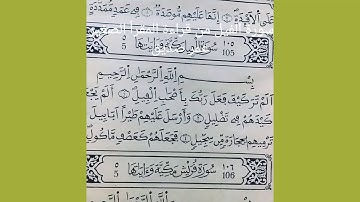 عَلَى الْأَفْئِدَةِ ۝ إِنَّهَا عَلَيْهِمْ مُؤْصَدَةٌ ۝ فِي عَمَدٍ مُمَدَّدَةٍ
5 ٥ سُورَةُ الْفِيلِ مَكِّيَّةٌ وَءَايَاتُهَا ١٠٥ 105
بِسْمِ اللَّهِ الرَّحْمَٰنِ الرَّحِيمِ
أَلَمْ تَرَ كَيْفَ فَعَلَ رَبُّكَ بِأَصْحَٰبِ الْفِيلِ ۝ أَلَمْ يَجْعَلْ
كَيْدَهُمْ فِي تَضْلِيلٍ ۝ وَأَرْسَلَ عَلَيْهِمْ طَيْرًا أَبَابِيلَ
تَرْمِيهِمْ بِحِجَارَةٍ مِنْ سِجِّيلٍ ۝ فَجَعَلَهُمْ كَعَصْفٍ مَأْكُولٍ
5 ٥ سُورَةُ قُرَيْشٍ مَكِّيَّةٌ وَءَايَاتُهَا ١٠٦ 106
بِسْمِ اللَّهِ الرَّحْمَٰنِ الرَّحِيمِ